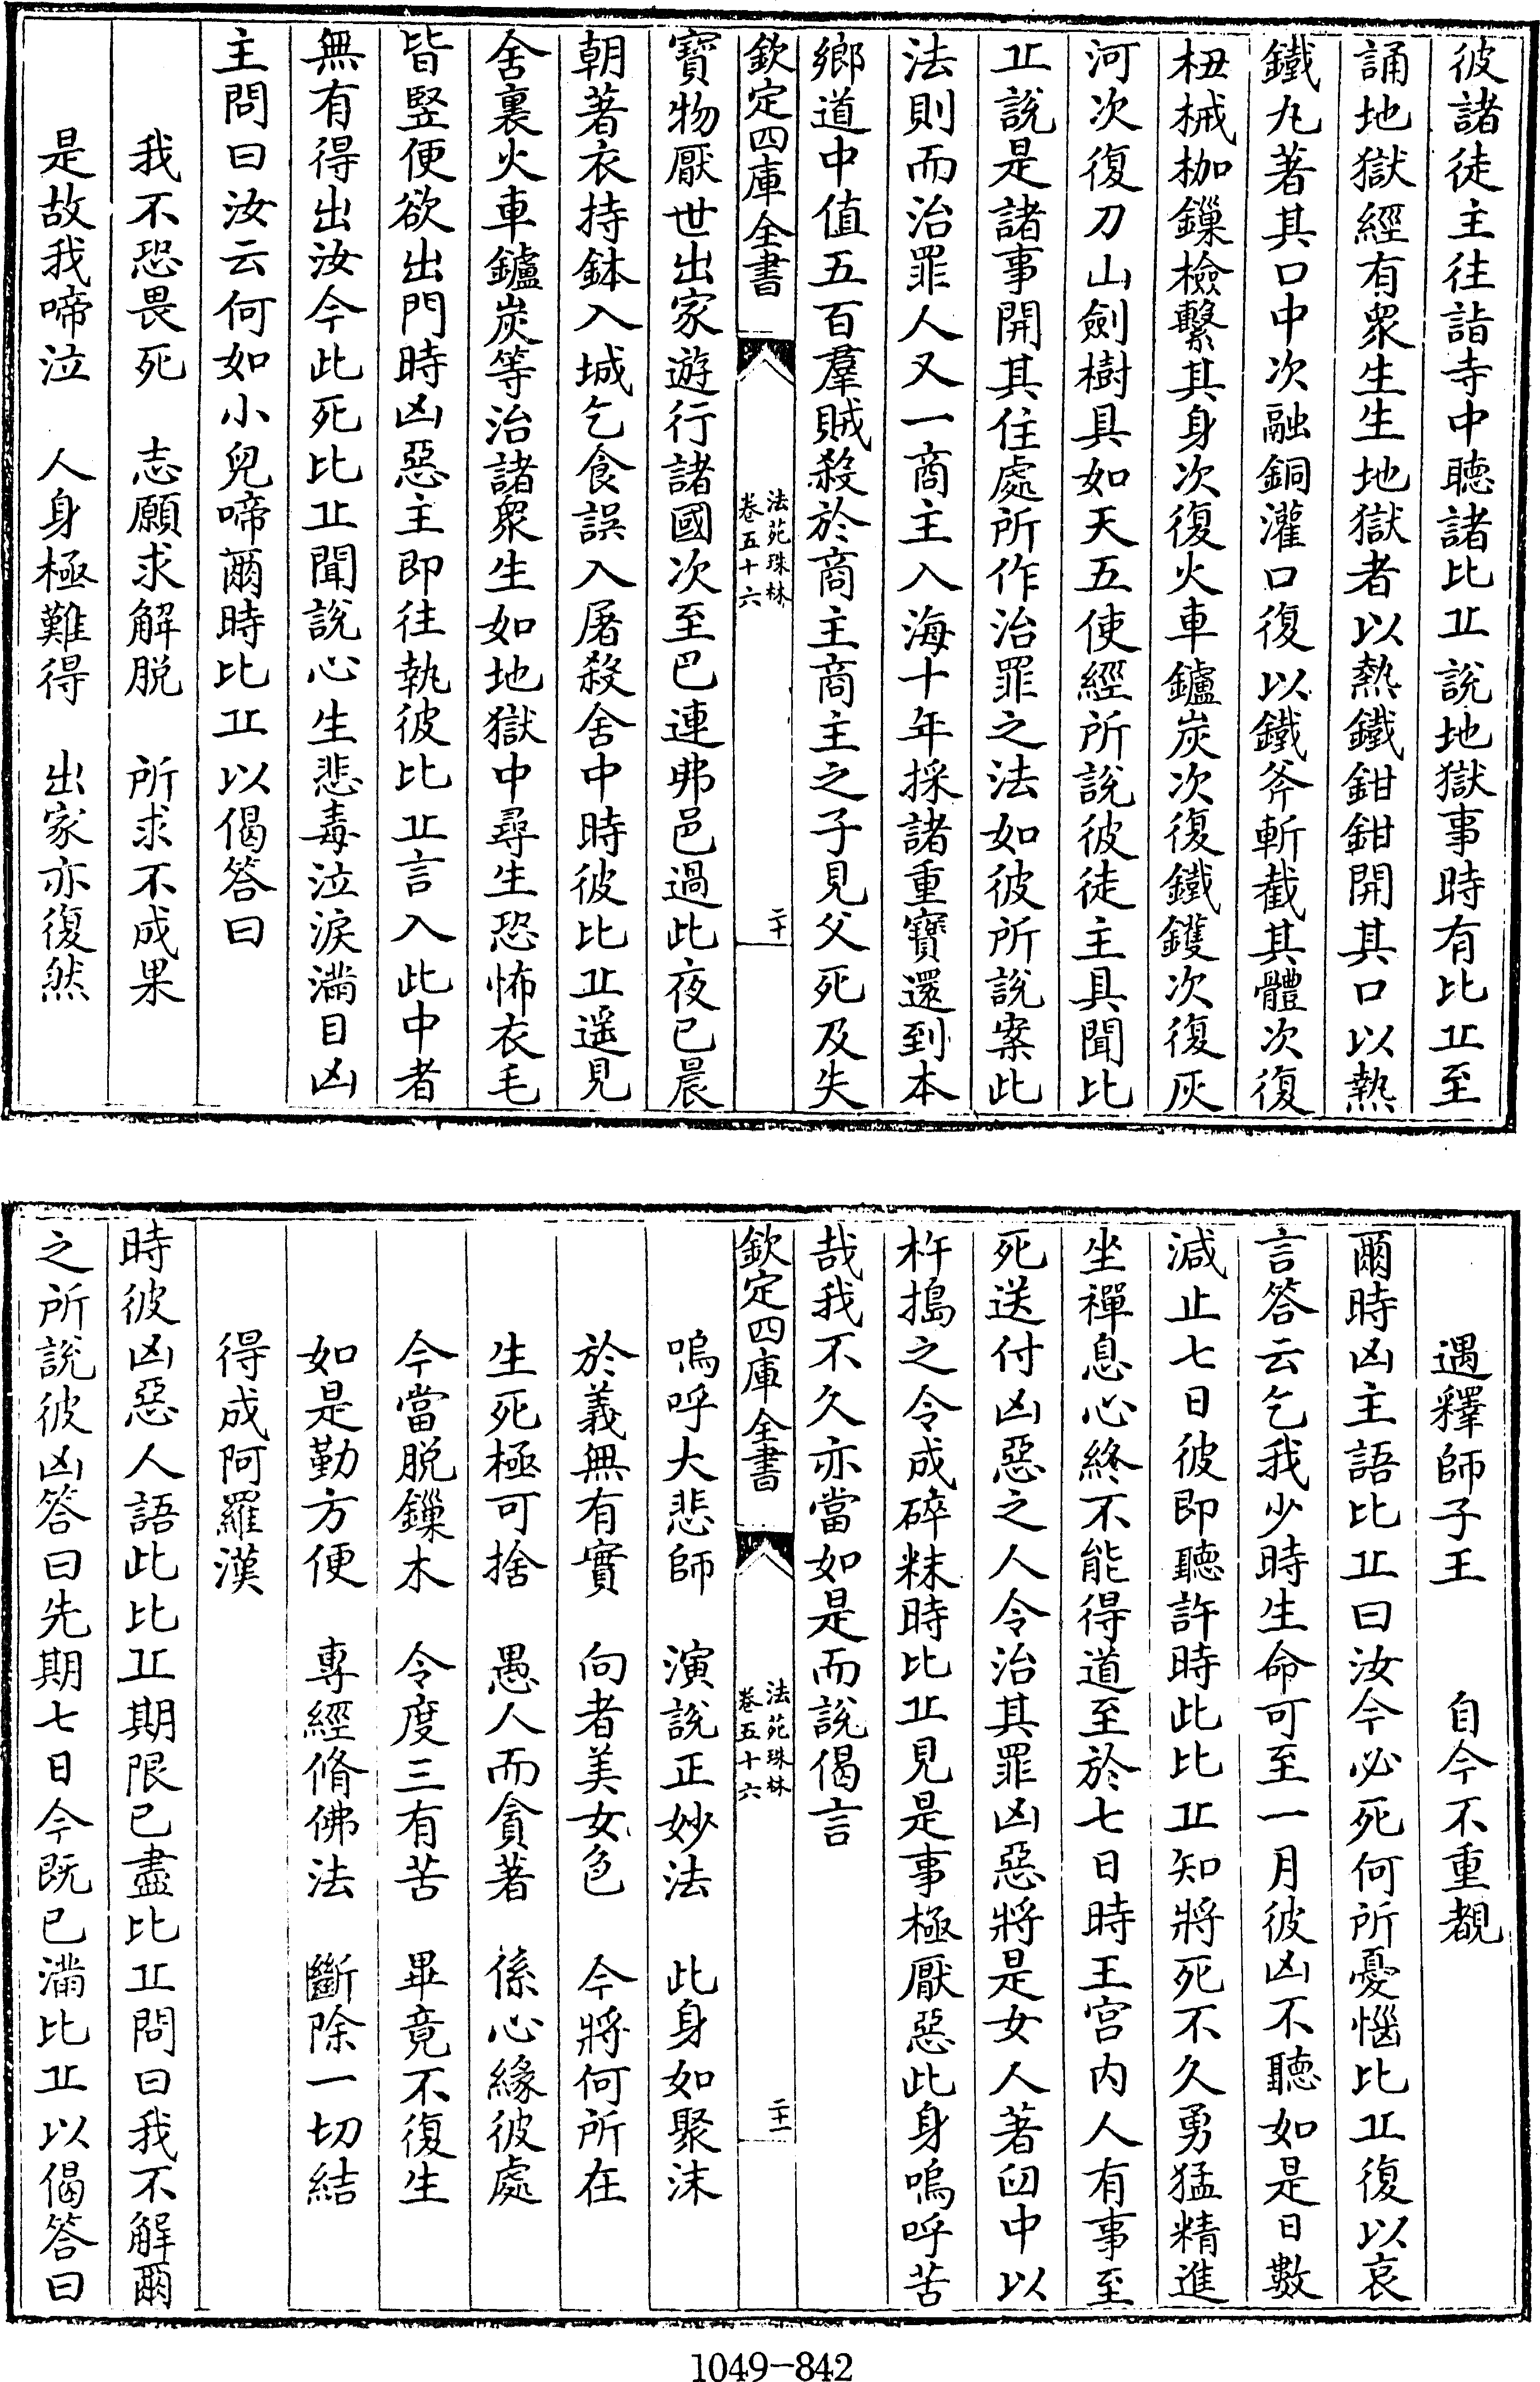 彼諸徒主往詣寺中聽諸比丘說地獄事時有比丘至
誦地獄經有衆生生地獄者以熱鐵鉗鉗開其口以熱
鐵丸著其口中次融銅灌口復以鐵斧斬截其體次復
杻械枷鏁檢繫其身次復火車鑪炭次復鐵鑊次復灰
河次復刀山劍樹具如天五使經所說彼徒主具聞比
丘說是諸事開其住處所作治罪之法如彼所說案此
法則而治罪人又一商主入海十年採諸重寶還到本
鄉道中值五百羣賊殺於商主商主之子見父死及失
欽定四庫全書
法苑珠林
卷五十六
二十
寶物厭世出家遊行諸國次至巴連弗邑過此夜已晨
朝著衣持鉢入城乞食誤入屠殺舍中時彼比丘遥見
舍裏火車鑪炭等治諸衆生如地獄中尋生恐怖衣毛
皆竪便欲出門時凶惡主即往執彼比丘言入此中者
無有得出汝今此死比丘聞說心生悲毒泣淚滿目凶
主問曰汝云何如小兒啼爾時比丘以偈答曰
我不恐畏死　志願求解脫　所求不成果
是故我啼泣　人身極難得　出家亦復然
遇釋師子王　自今不重覩
爾時凶主語比丘曰汝今必死何所憂惱比丘復以哀
言答云乞我少時生命可至一月彼凶不聽如是日數
減止七日彼即聽許時此比丘知將死不久勇猛精進
坐禪息心終不能得道至於七日時王宮内人有事至
死送付凶惡之人令治其罪凶惡將是女人著臼中以
杵搗之令成碎粖時比丘見是事極厭惡此身嗚呼苦
哉我不久亦當如是而說偈言
欽定四庫全書
法苑珠林
卷五十六
二十一
嗚呼大悲師　演說正妙法　此身如聚沫
於義無有實　向者美女色　今將何所在
生死極可捨　愚人而貪著　係心緣彼處
今當脫鏁木　令度三有苦　畢竟不復生
如是勤方便　專經脩佛法　斷除一切結
得成阿羅漢
時彼凶惡人語此比丘期限已盡比丘問曰我不解爾
之所說彼凶答曰先期七日今既已滿比丘以偈答曰
1049-842